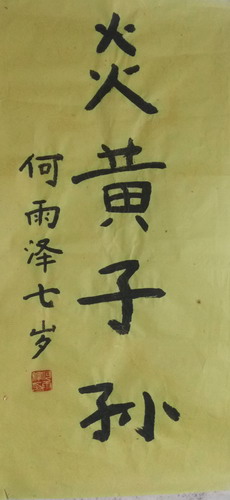 炎黄子孙
何雨泽七岁